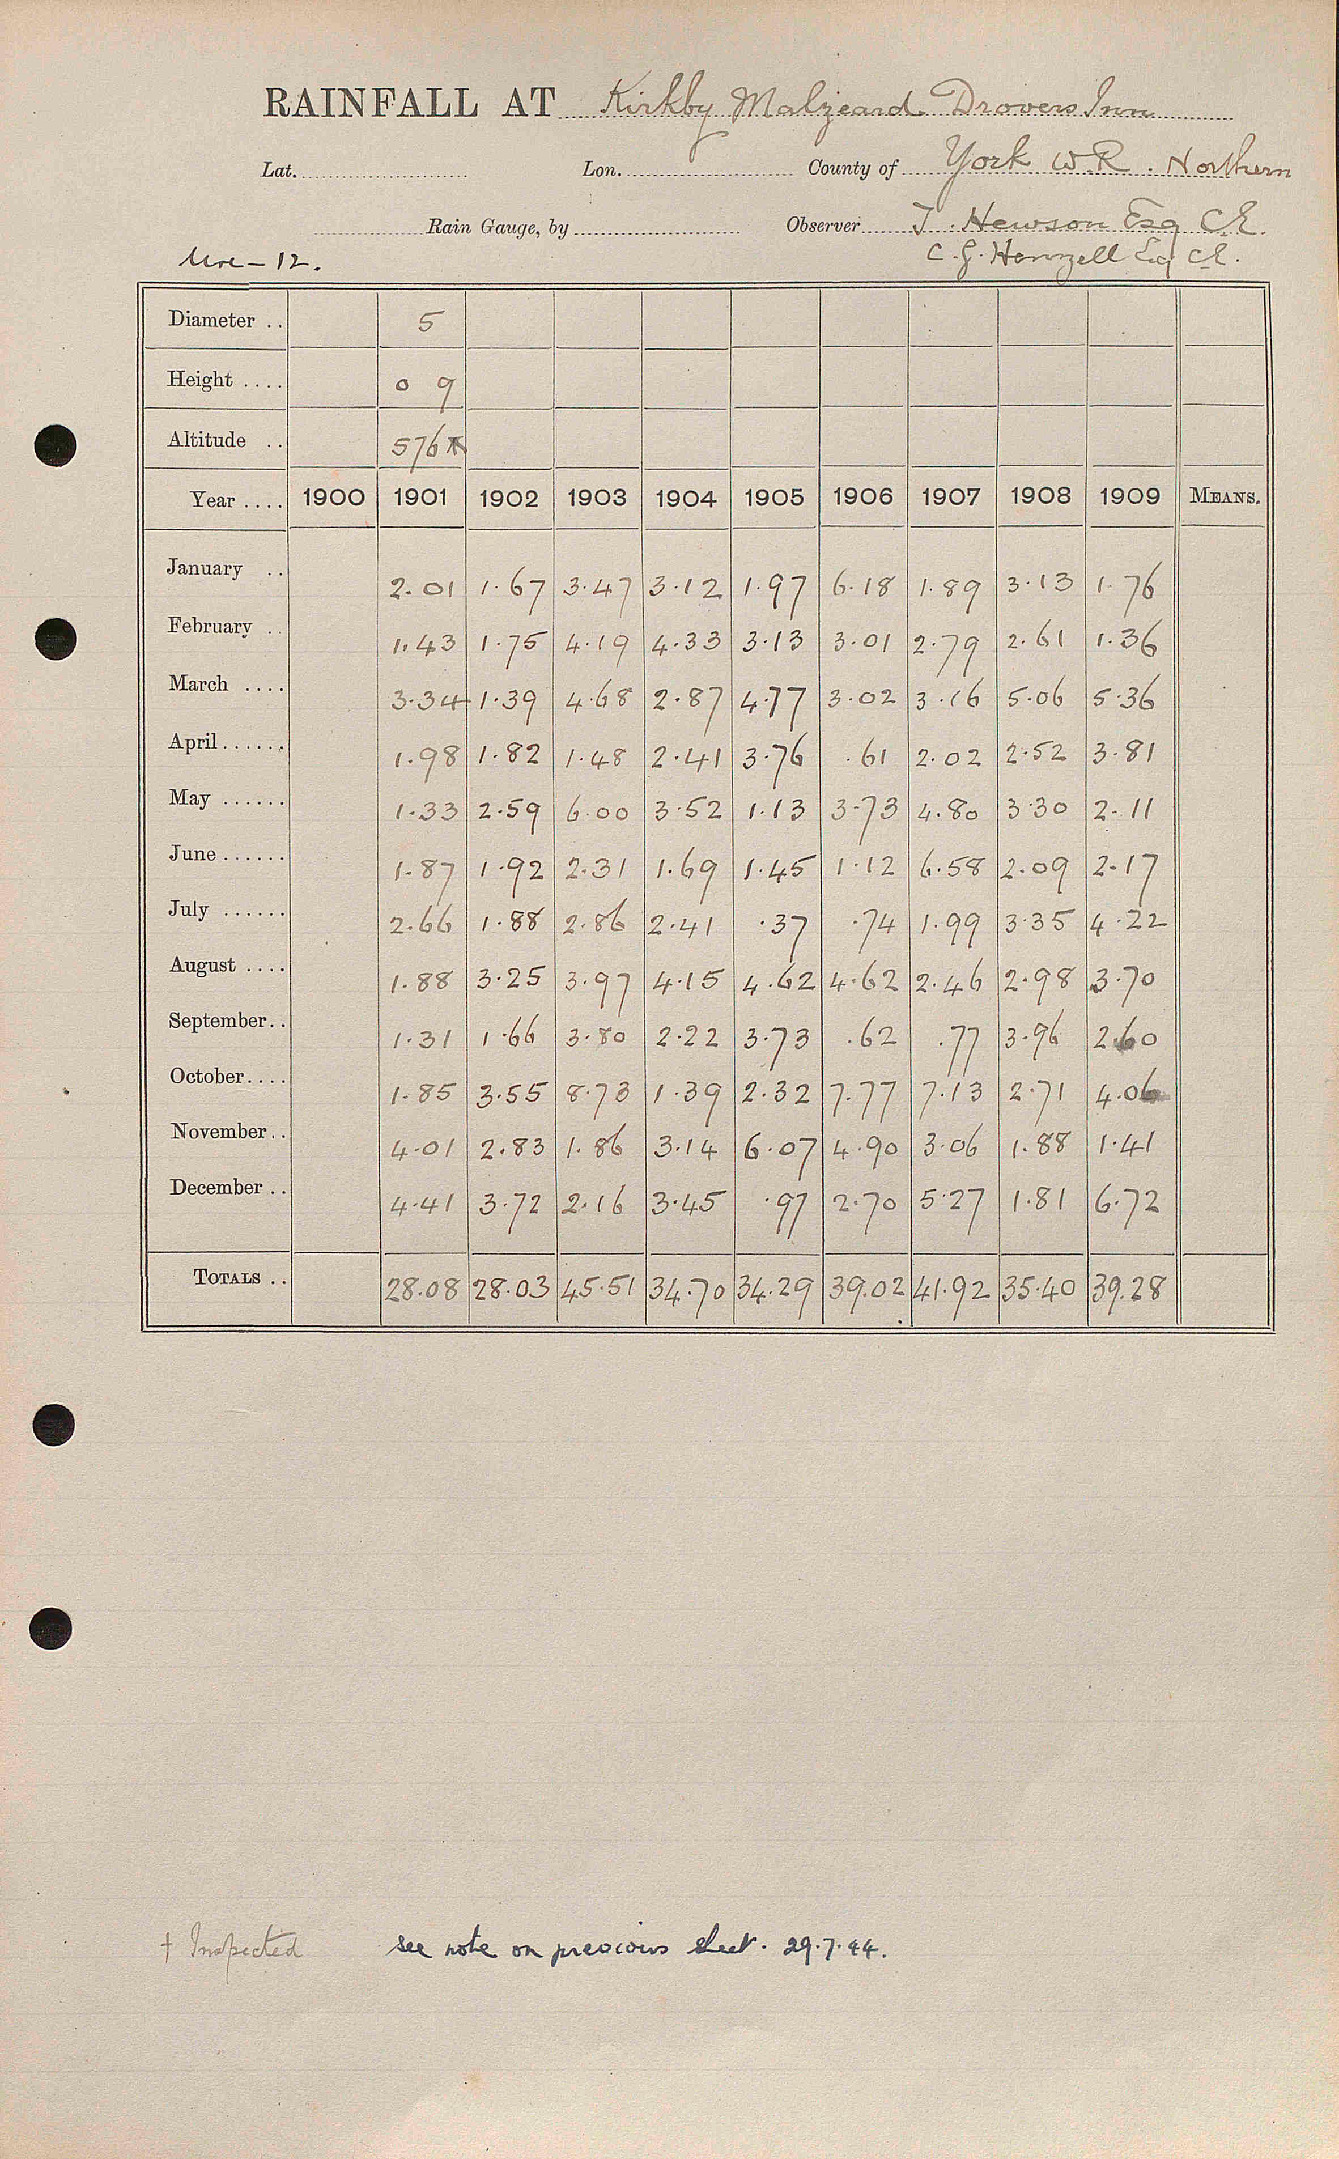 RAINFALL AT Kirkby Malzeard Drovers Inn
Lat. Lon. County of York W.R. Northern
Rain Gauge, by Observer T. Hewson Esq C.E.
Ure - 12. C. G. Henzell Esq C.E.
Diameter .. 5
Height .... 0 9
Altitude .. 576
Year .... 1900 1901 1902 1903 1904 1905 1906 1907 1908 1909 MEANS.
January .. 2.01 1.67 3.47 3.12 1.97 6.18 1.89 3.13 1.76
February .. 1.43 1.75 4.19 4.33 3.13 3.01 2.79 2.61 1.36
March .... 3.34 1.39 4.68 2.87 4.77 3.02 3.16 5.06 5.36
April...... 1.98 1.82 1.48 2.41 3.76 .61 2.02 2.52 3.81
May ...... 1.33 2.59 6.00 3.52 1.13 3.73 4.80 3.30 2.11
June...... 1.87 1.92 2.31 1.69 1.45 1.12 6.58 2.09 2.17
July ...... 2.66 1.88 2.86 2.41 .37 .74 1.99 3.35 4.22
August .... 1.88 3.25 3.97 4.15 4.62 4.62 2.46 2.98 3.70
September.. 1.31 1.66 3.80 2.22 3.73 .62 .77 3.96 2.60
October.... 1.85 3.55 8.73 1.39 2.32 7.77 7.13 2.71 4.06
November.. 4.01 2.83 1.86 3.14 6.07 4.90 3.06 1.88 1.41
December .. 4.41 3.72 2.16 3.45 .97 2.70 5.27 1.81 6.72
TOTALS .. 28.08 28.03 45.51 34.70 34.29 39.02 41.92 35.40 39.28
† Inspected see note on previous sheet. 29.7.44.